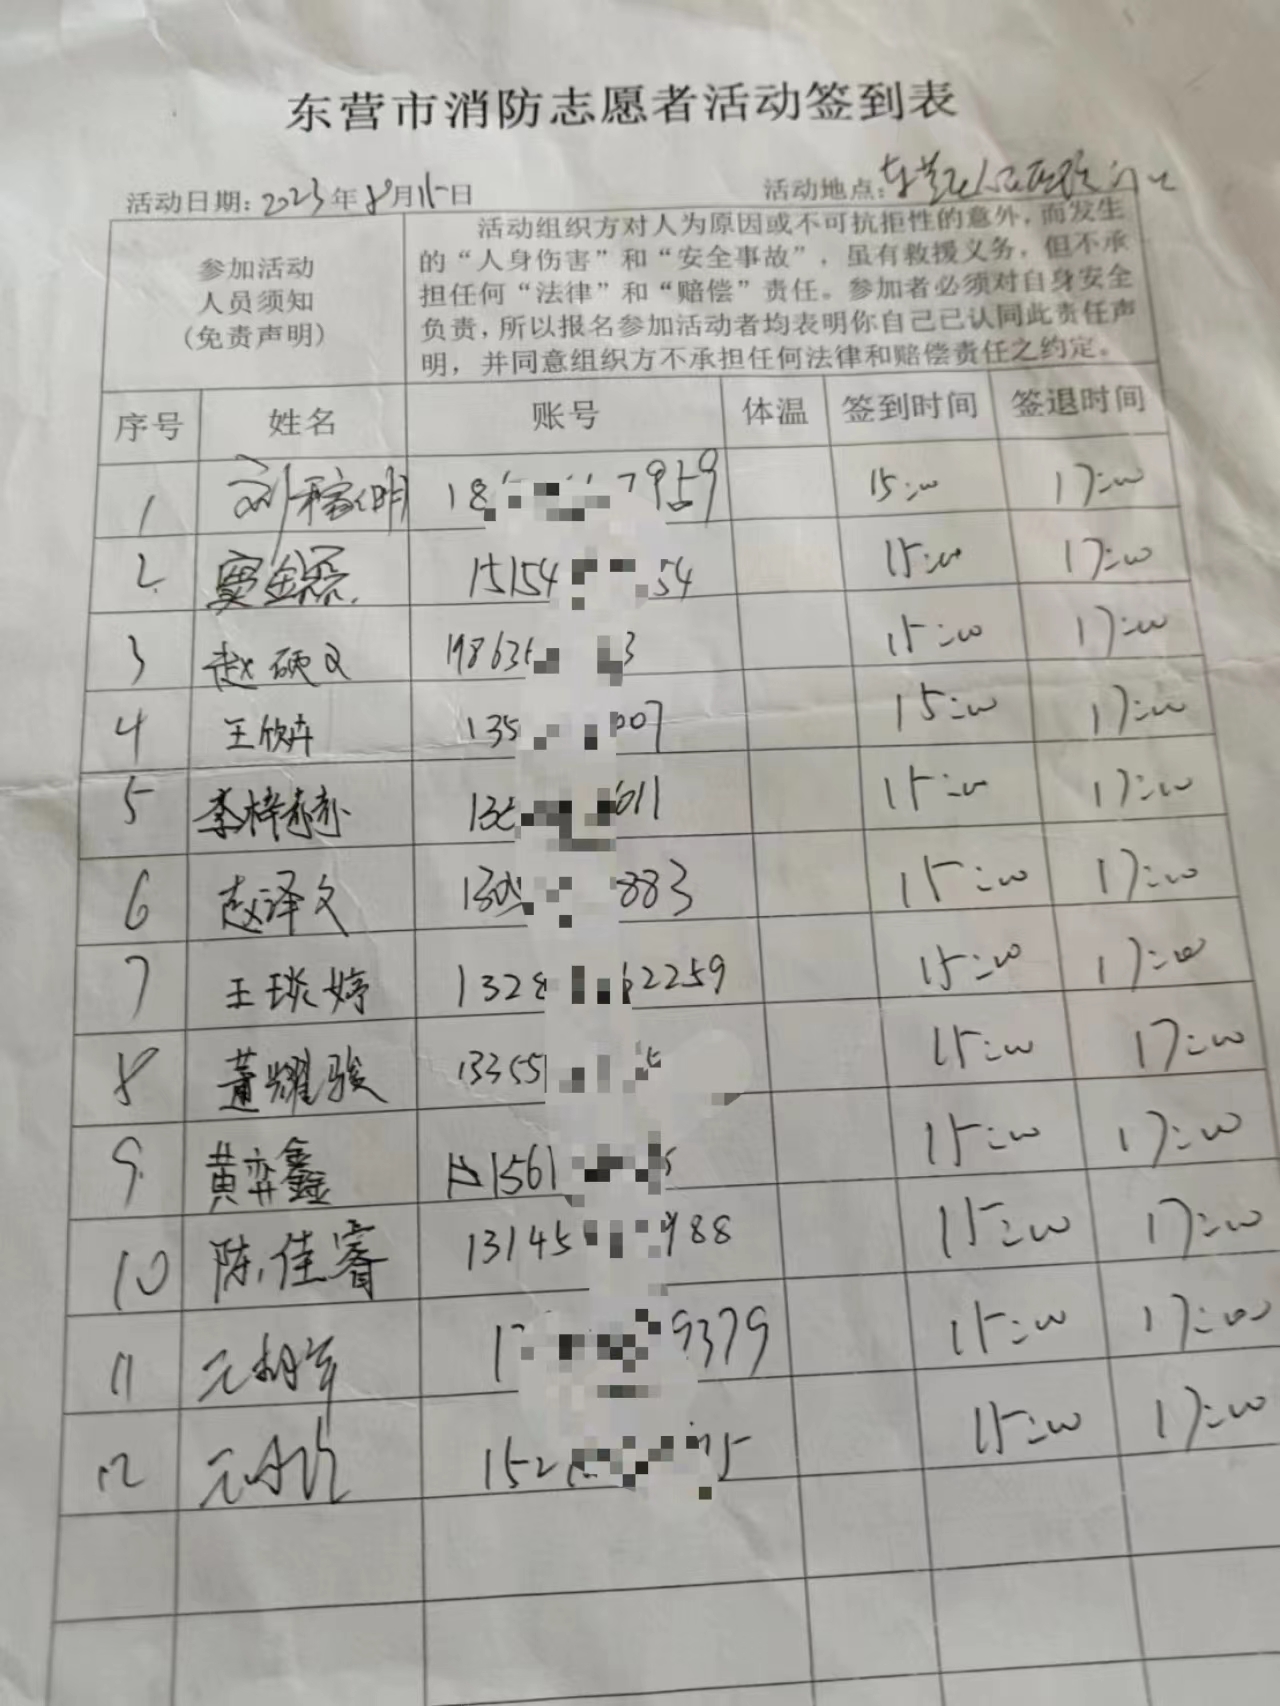 东营市消防志愿者活动签到表
活动日期:2023年8月15日 活动地点:东营
参加活动
人员须知
(免责声明)
活动组织方对人为原因或不可抗拒性的意外,而发生
的“人身伤害”和“安全事故”,虽有救援义务,但不承
担任何“法律”和“赔偿”责任。参加者必须对自身安全
负责,所以报名参加活动者均表明你自己已认同此责任声
明,并同意组织方不承担任何法律和赔偿责任之约定。
序号 姓名 账号 体温 签到时间 签退时间
1 刘稼 18 7959 15:00 17:00
2 窦金磊 15154 54 15:00 17:00
3 赵硕文 19863 3 15:00 17:00
4 王欣卉 135 007 15:00 17:00
5 李梓赫 13 611 15:00 17:00
6 赵译文 130 883 15:00 17:00
7 王琰婷 1328 62259 15:00 17:00
8 董耀骏 13355 15:00 17:00
9 黄弈鑫 1561 15:00 17:00
10 陈佳睿 13145 988 15:00 17:00
11 元 1 9379 15:00 17:00
12 元 152 75 15:00 17:00